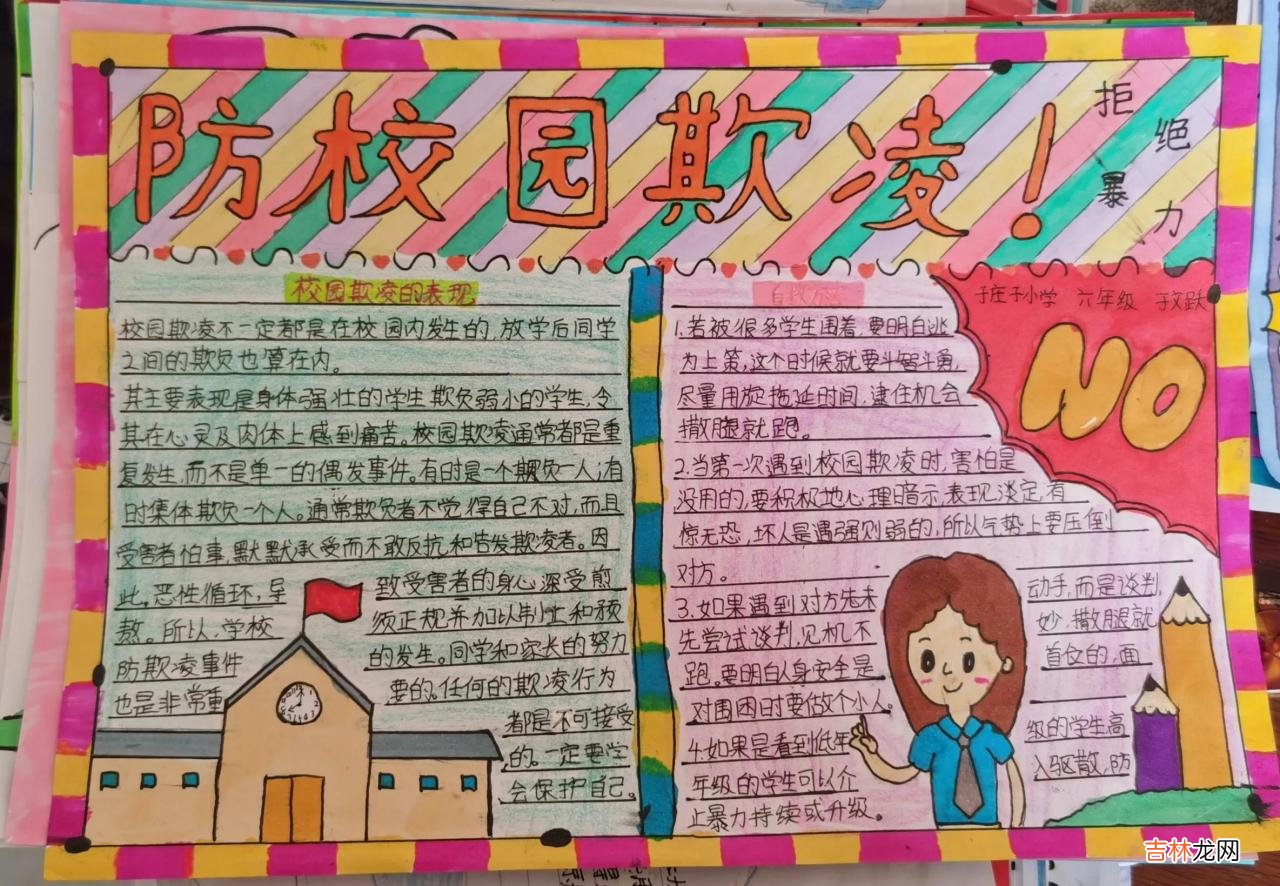 防校园欺凌！
拒
绝
暴
力
校园欺凌的表现
校园欺凌不一定都是在校园内发生的，放学后同学
之间的欺负也算在内。
其主要表现是身体强壮的学生欺负弱小的学生，令
其在心灵及肉体上感到痛苦。校园欺凌通常都是重
复发生，而不是单一的偶发事件。有时是一个欺负一人；有
时集体欺负一个人。通常欺负者不觉得自己不对，而且
受害者怕事，默默承受而不敢反抗和告发欺凌者。因
此，恶性循环，导 致受害者的身心深受煎
熬。所以，学校 须正规并加以制止和预
防欺凌事件 的发生。同学和家长的努力
也是非常重 要的。任何的欺凌行为
都是不可接受
的。一定要学
会保护自己。
自救方法
于庄子小学 六年级 于文跃
NO
1.若被很多学生围着，要明白逃
为上策，这个时候就要斗智斗勇，
尽量周旋拖延时间，逮住机会
撒腿就跑。
2.当第一次遇到校园欺凌时，害怕是
没用的，要积极地心理暗示，表现淡定，有
恃无恐，坏人是遇强则弱的，所以气势上要压倒
对方。
3.如果遇到对方先未 动手，而是谈判，
先尝试谈判，见机不 妙，撒腿就
跑。要明白人身安全是 首位的，面
对围困时要做个小人。
4.如果是看到低年 级的学生高
年级的学生可以介 入驱散，防
止暴力持续或升级。
吉林龙网